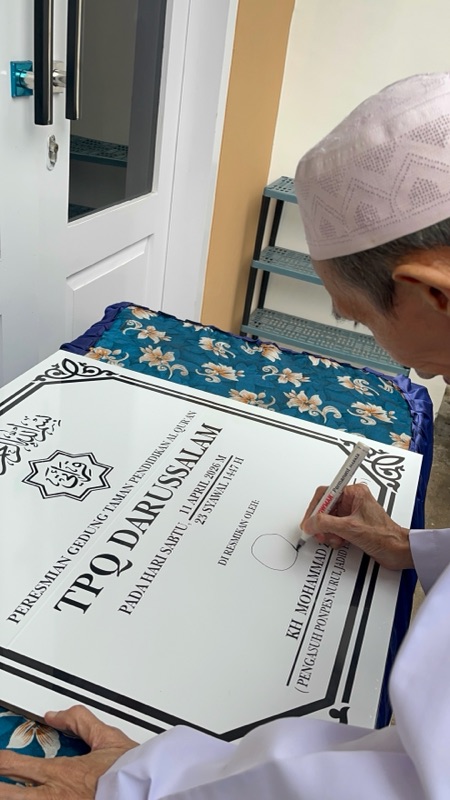 PERESMIAN GEDUNG TAMAN PENDIDIKAN AL QUR'AN
TPQ DARUSSALAM
PADA HARI SABTU, 11 APRIL 2026 M
23 SYAWAL 1447 H
DI RESMIKAN OLEH:
KH MOHAMMAD
( PENGASUH PONPES NURUL JADID